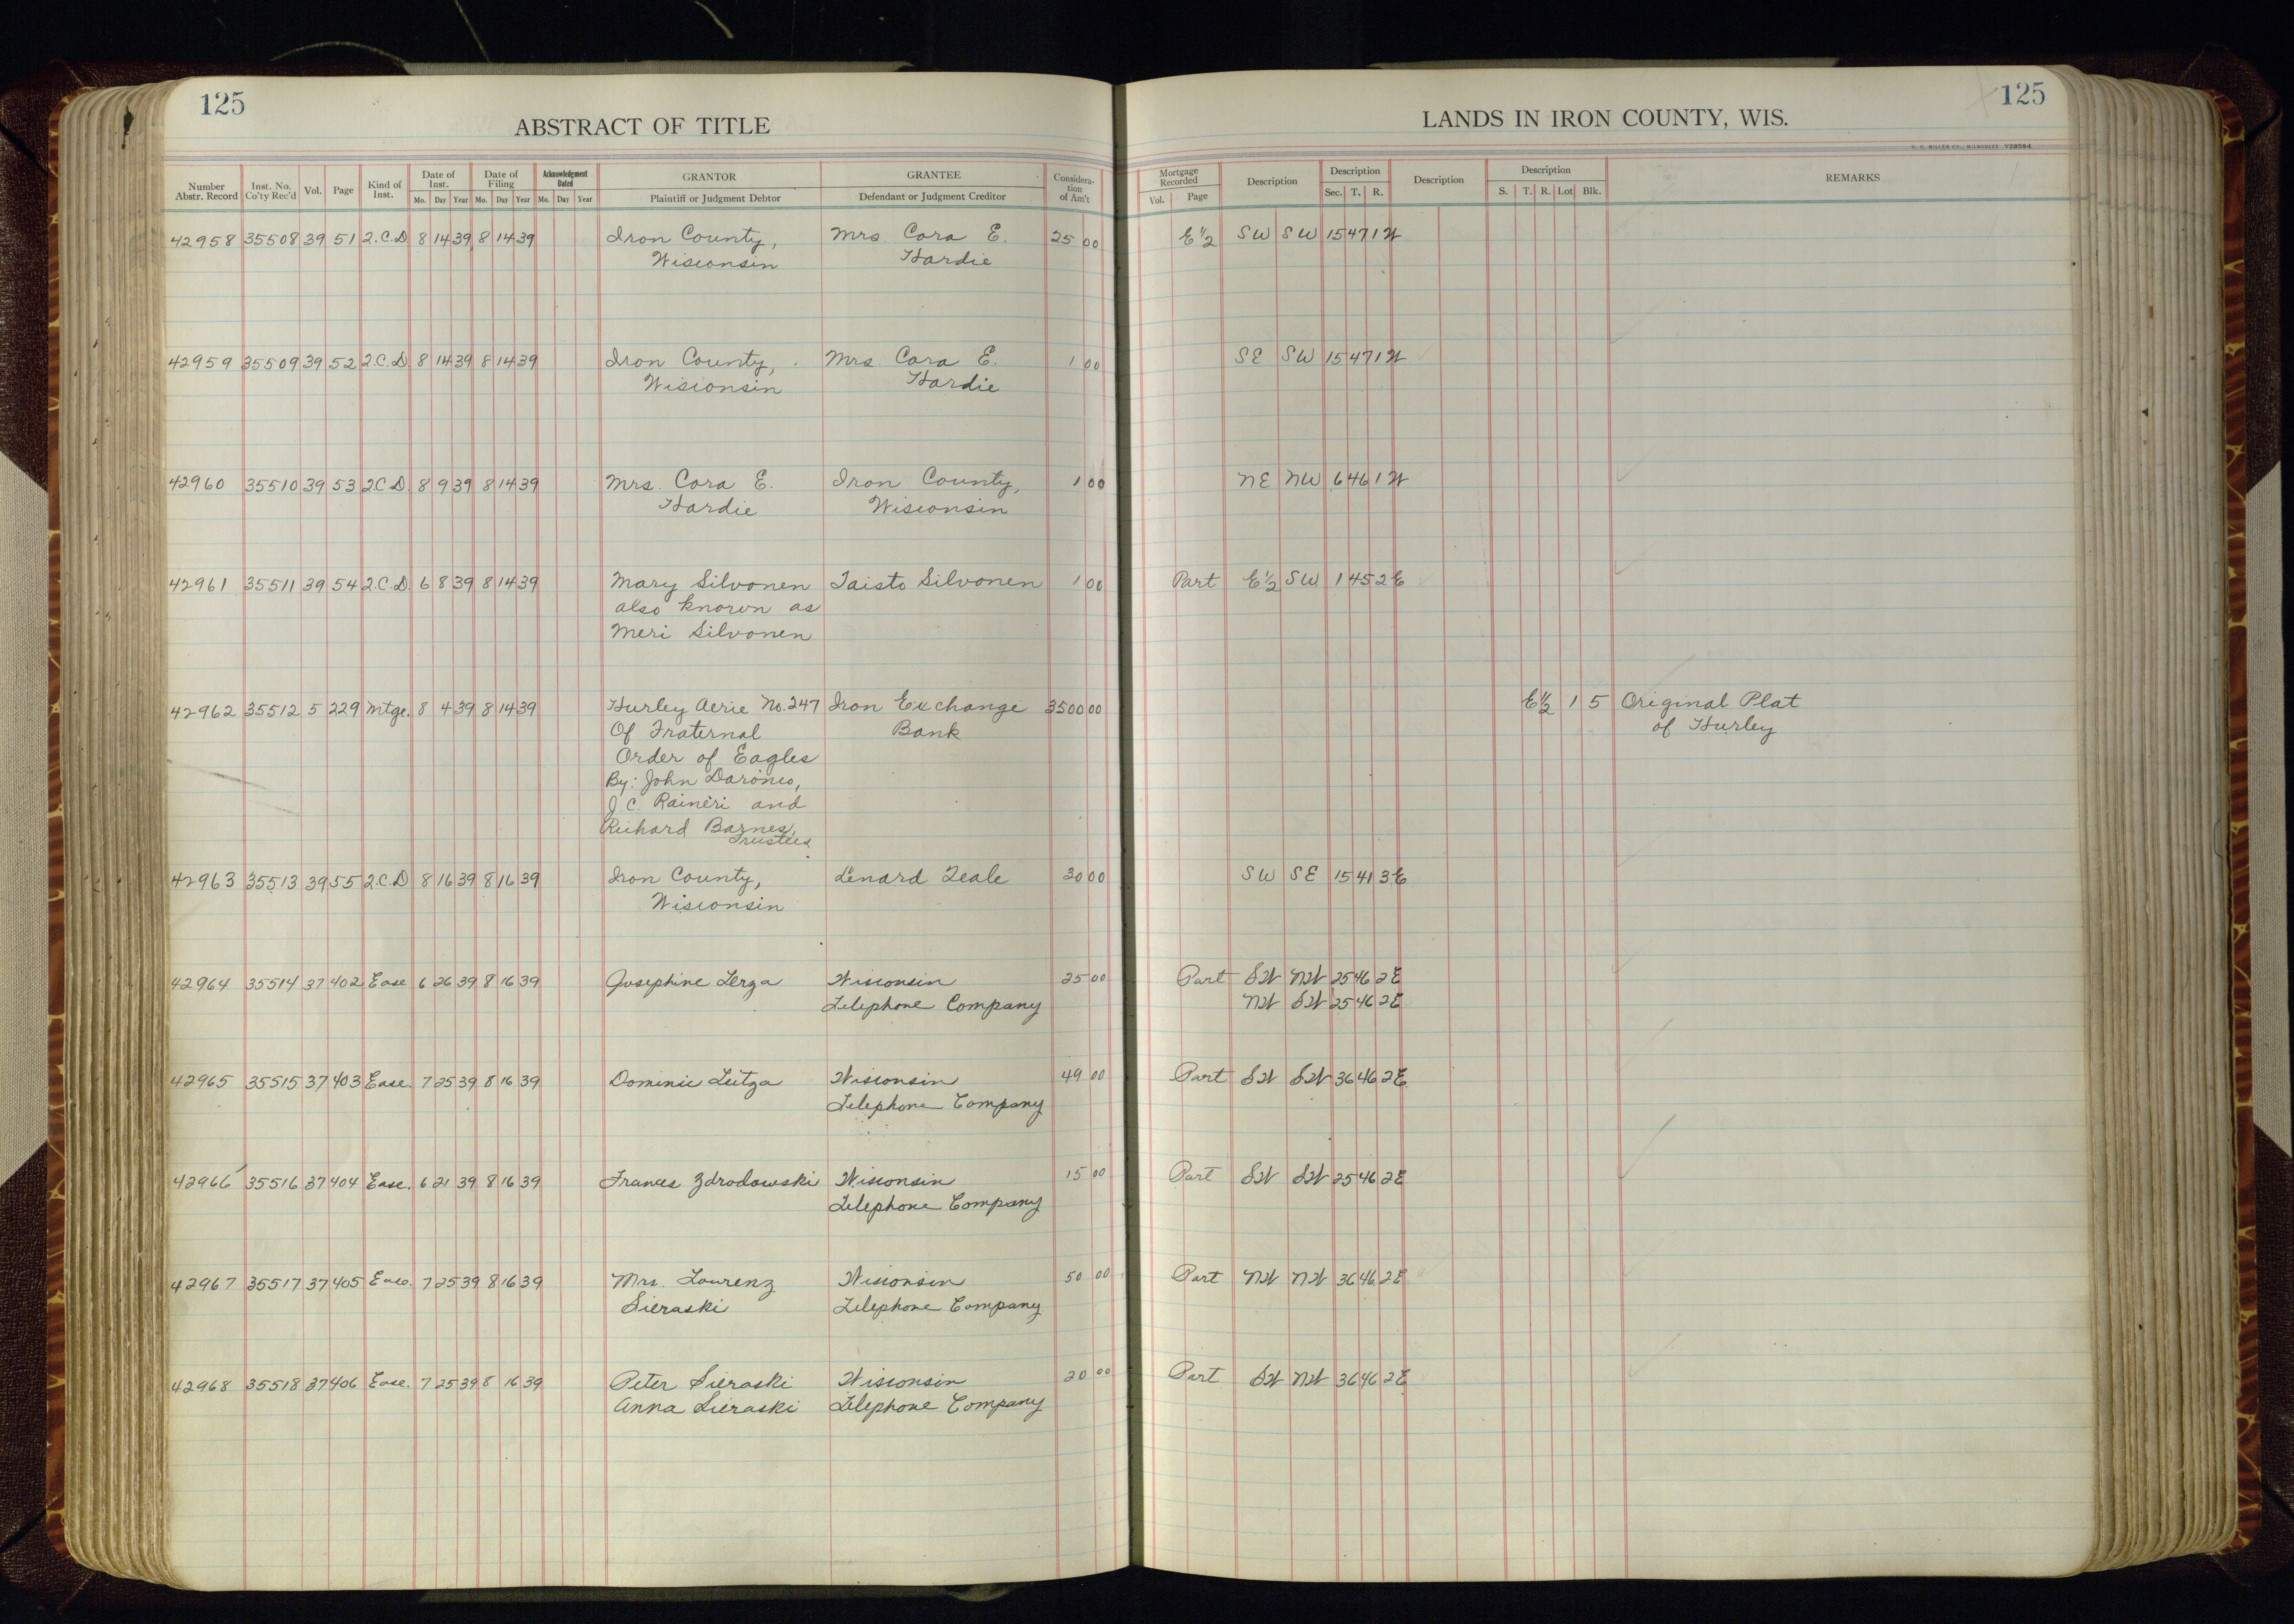 125
ABSTRACT OF TITLE
Number Abstr. Record Inst. No. Co'ty Rec'd Vol. Page Kind of Inst. Date of Inst. Mo. Day Year Date of Filing Mo. Day Year Acknowledgment Dated Mo. Day Year GRANTOR Plaintiff or Judgment Debtor GRANTEE Defendant or Judgment Creditor Considera-tion of Am't
125
LANDS IN IRON COUNTY, WIS.
H. C. MILLER CO., MILWAUKEE Y28594
Mortgage Recorded Vol. Page Description Description Sec. T. R. Description Description S. T. R. Lot Blk. REMARKS
42958 35508 39 51 2.C.D 8 14 39 8 14 39 Iron County, Mrs Cora E. 25 00 E½ SW SW 15 47 1W
Wisconsin Hardie
42959 35509 39 52 2.C.D. 8 14 39 8 14 39 Iron County, Mrs. Cora E. 1 00 SE SW 15 47 1W
Wisconsin Hardie
42960 35510 39 53 2.C.D. 8 9 39 8 14 39 Mrs. Cora E. Iron County, 1 00 NE NW 6 46 1W
Hardie Wisconsin
42961 35511 39 54 2.C.D. 6 8 39 8 14 39 Mary Silvonen Taisto Silvonen 1 00 Part E½ SW 1 45 2E
also known as
Meri Silvonen
42962 35512 5 229 Mtge. 8 4 39 8 14 39 Hurley Aerie No. 247 Iron Exchange 3500 00 E½ 1 5 Original Plat
Of Fraternal Bank of Hurley
Order of Eagles
By: John Daronco,
J. C. Raineri and
Richard Barnes,
Trustees.
42963 35513 39 55 2.C.D 8 16 39 8 16 39 Iron County, Lenard Teale 30 00 SW SE 15 41 3E
Wisconsin
42964 35514 37 402 Ease 6 26 39 8 16 39 Josephine Lerza Wisconsin 25 00 Part SW NW 25 46 2E
Telephone Company NW SW 25 46 2E
42965 35515 37 403 Ease. 7 25 39 8 16 39 Dominic Wisconsin 49 00 Part SW SW 36 46 2E
Telephone Company
42966 35516 37 404 Ease. 6 21 39 8 16 39 Frances Zdrodowski Wisconsin 15 00 Part SW SW 25 46 2E
Telephone Company
42967 35517 37 405 Ease. 7 25 39 8 16 39 Mrs. Lourenz Wisconsin 50 00 Part NW NW 36 46 2E
Sieraski Telephone Company
42968 35518 37 406 Ease. 7 25 39 8 16 39 Peter Sieraski Wisconsin 20 00 Part SW NW 36 46 2E
Anna Sieraski Telephone Company